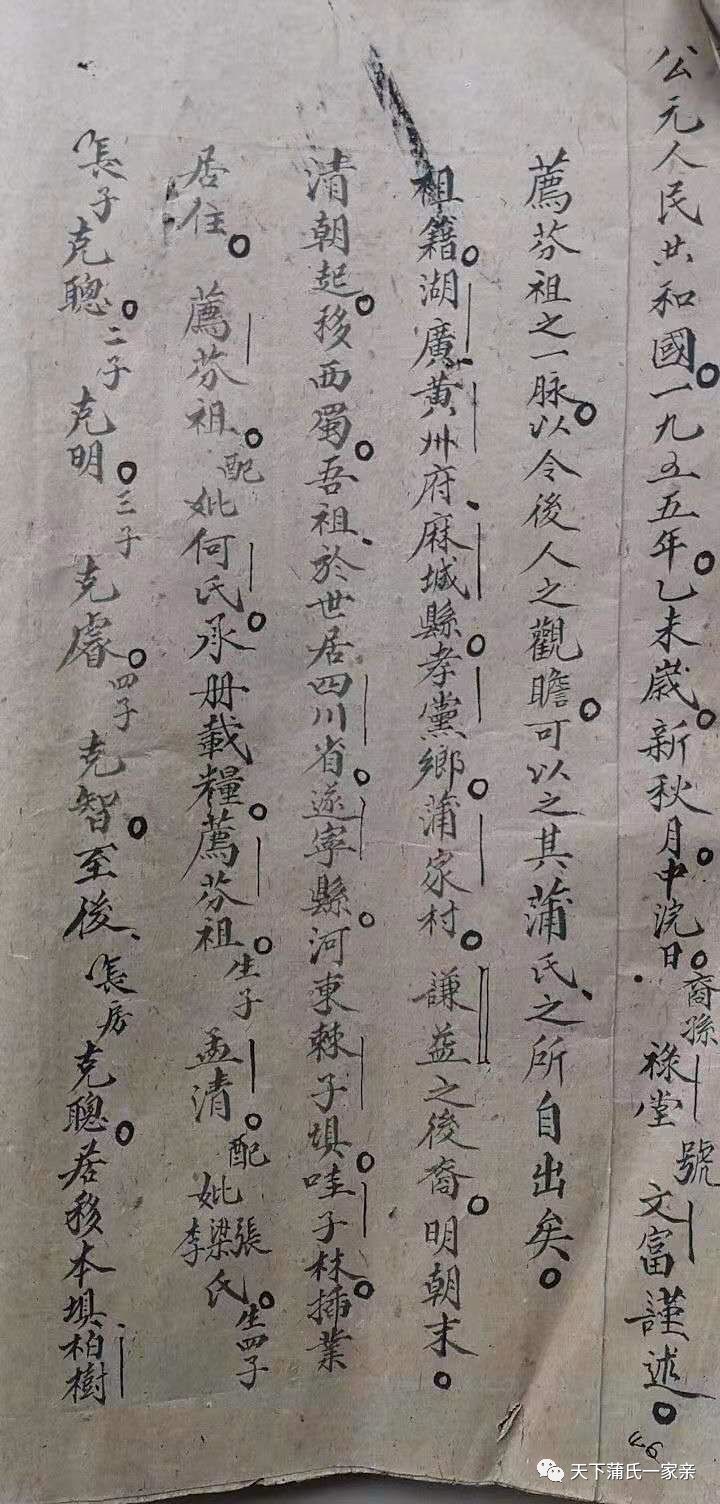 公元人民共和國。一九五五年。乙未歲。新秋月。中浣日。裔孫祿堂號文富謹述。
薦芬祖之一脉。以令後人之觀瞻。可以之其蒲氏、之所自出矣。
祖籍。湖廣黃州府、麻城縣。孝黨鄉。蒲家村。謙益之後裔。明朝末。
清朝起。移西蜀。吾祖、於世居四川省。遂寧縣。河東棘子埧。哇子林。插業
居住。薦芬祖。配妣何氏。承册載糧。薦芬祖。生子孟清。配妣張梁李氏。生四子
長子克聰。二子克明。三子克睿。四子克智。至後、長房克聰。居移本埧、柏樹
46
天下蒲氏一家亲